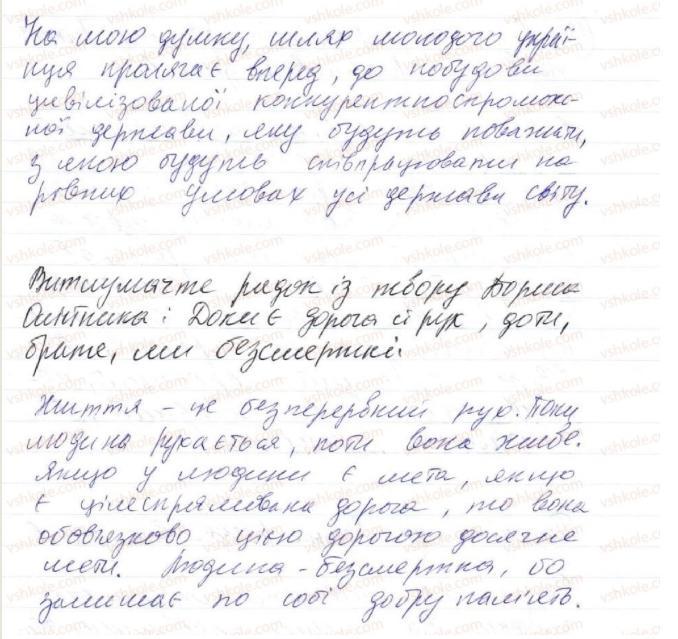 На мою думку, шлях молодого украї-
нця пролягає вперед, до побудови
цивілізованої конкурентноспромож-
ної держави, яку будуть поважати,
з якою будуть співпрацювати на
рівних умовах усі держави світу.
Витлумачте рядок із твору Бориса
Олійника: Доки є дорога й рух, доти,
брате, ми безсмертні.
Життя - це безперервний рух. Поки
людина рухається, доти вона живе.
Якщо у людини є мета, якщо
є цілеспрямована дорога, то вона
обов'язково цією дорогою досягне
мети. Людина - безсмертна, бо
залишає по собі добру память.